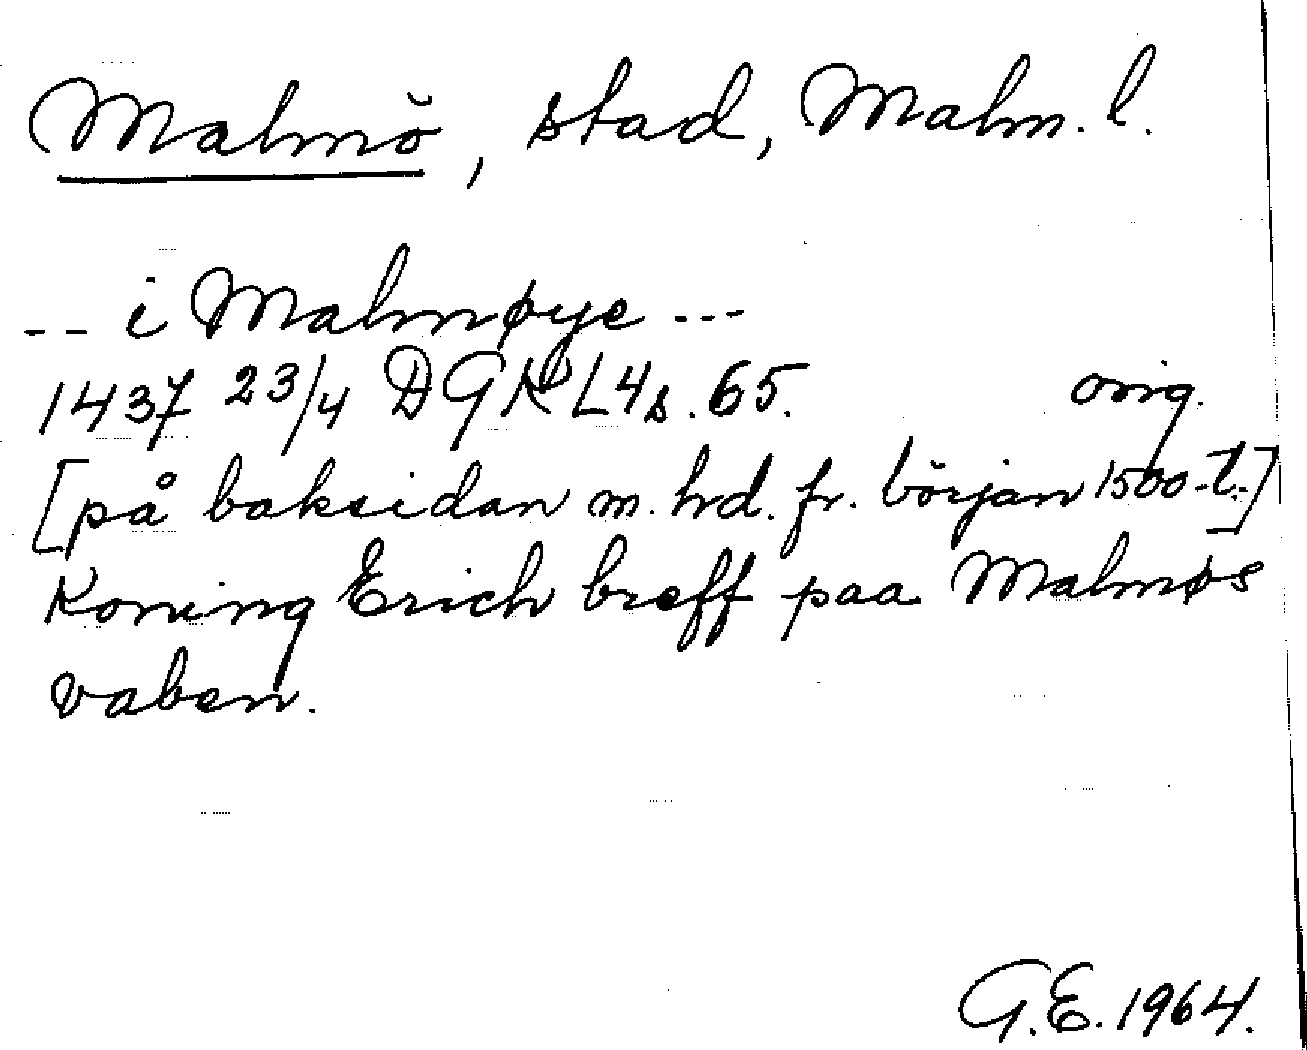 Malmö, stad, Malm. l.
-- i Malmøye ---
1437 23/4 DGKL4s. 65. orig.
[på baksidan m. hrd. fr. början 1500-t.]
Koning Erich breff paa Malmøs
vaben.
G.E. 1964.